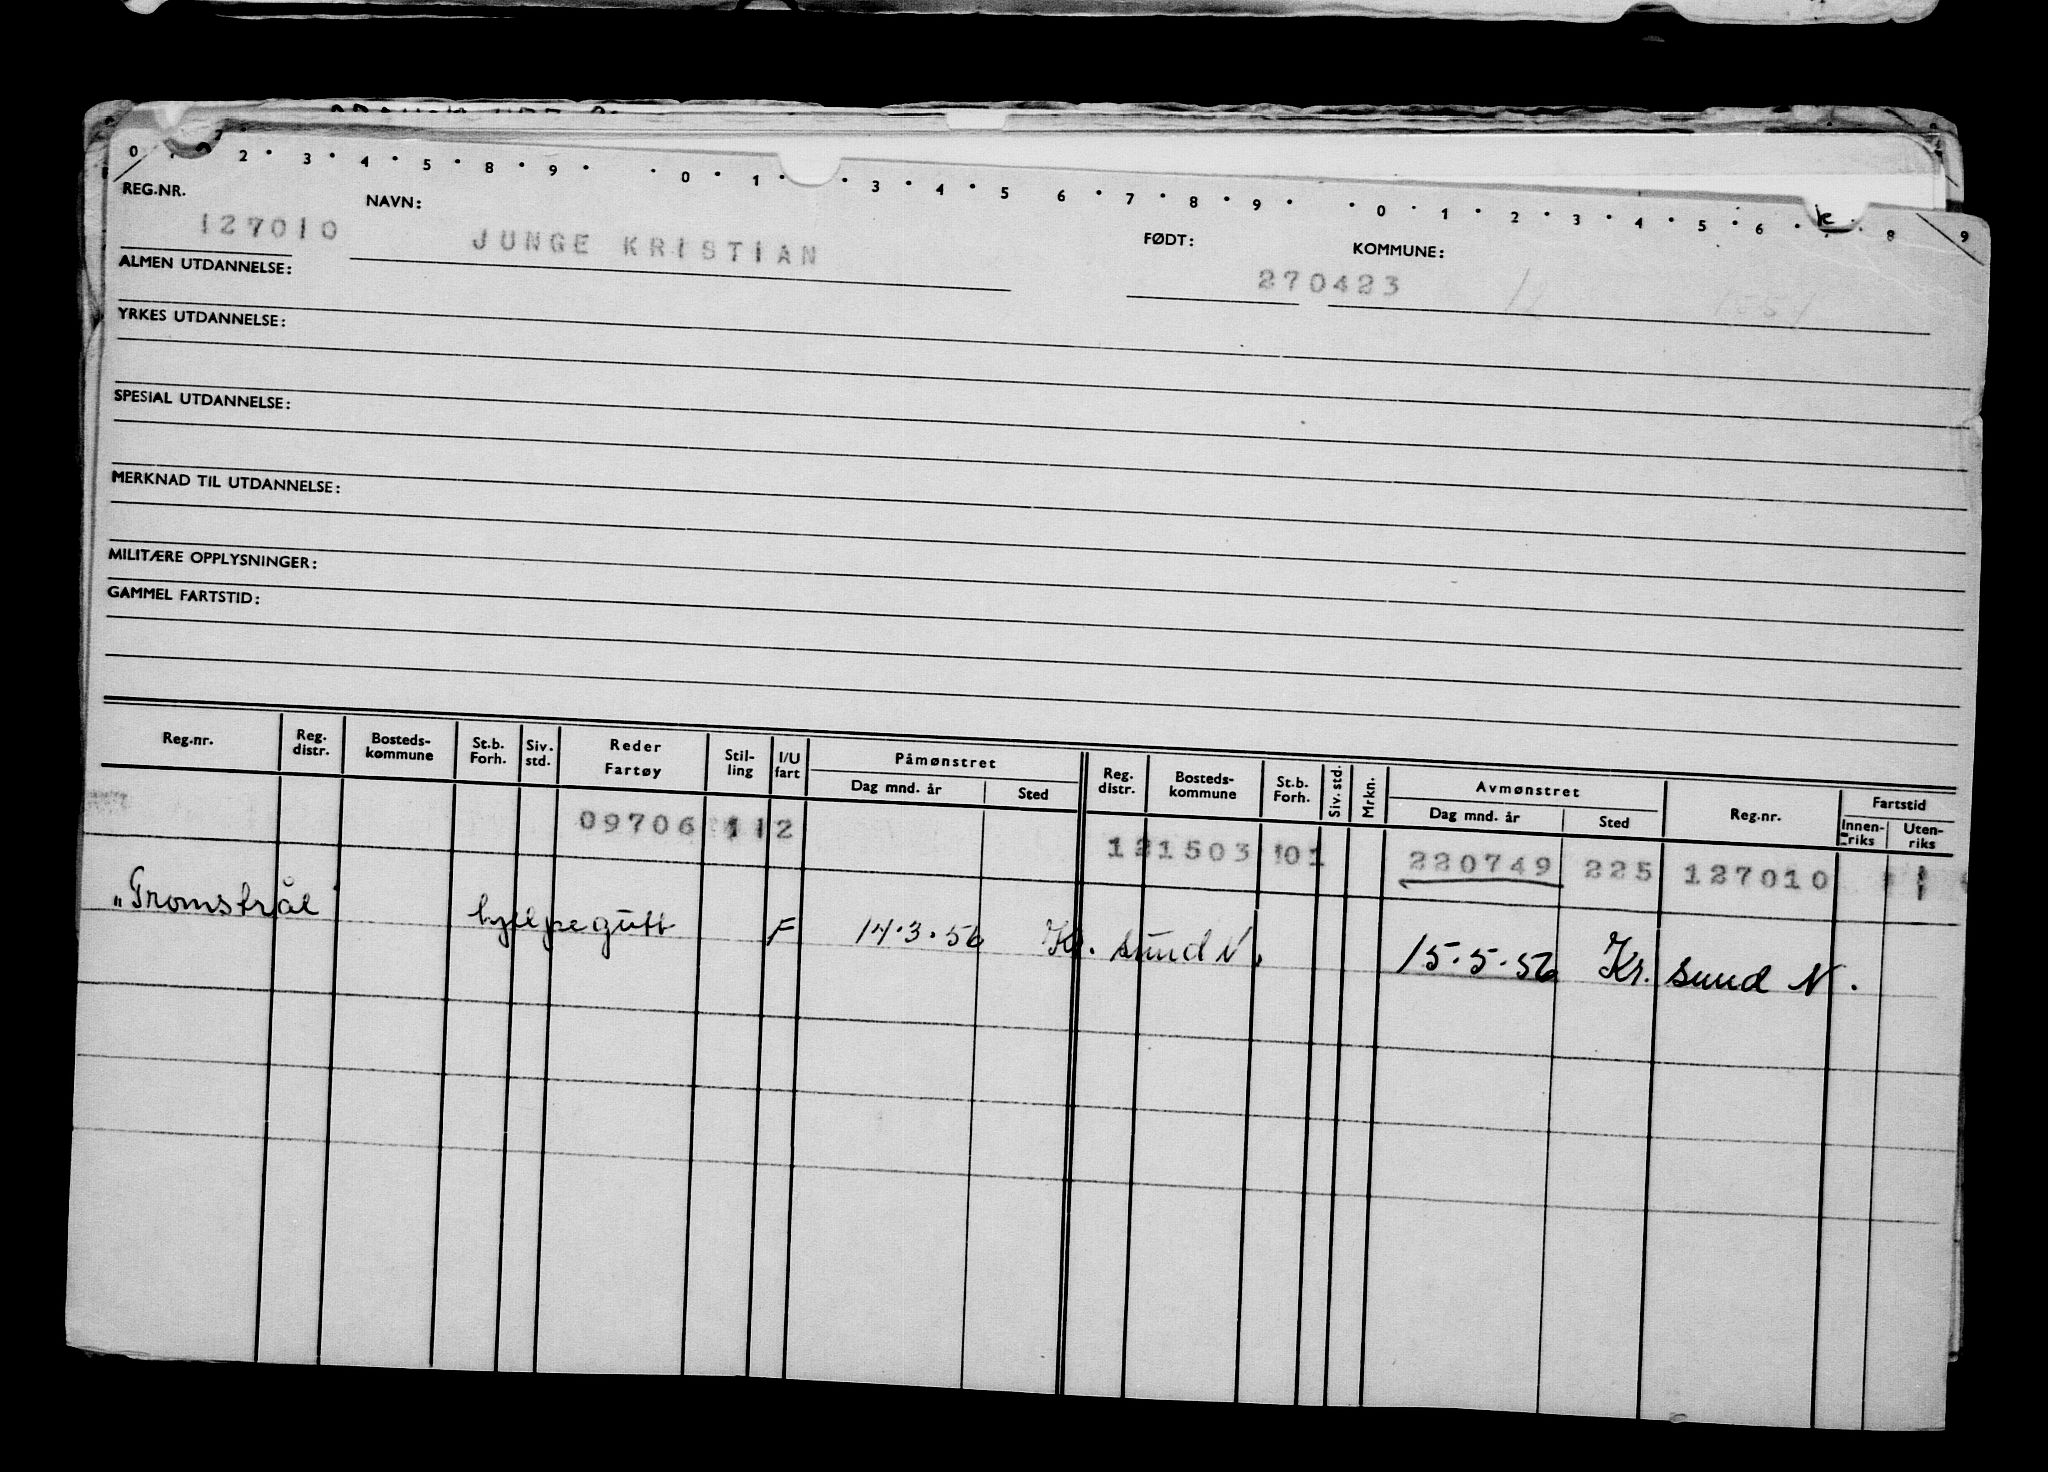 0 1 2 3 4 5 8 9 0 1 3 4 5 6 7 8 9 0 1 2 3 4 5 6 8 9
REG.NR. NAVN: FØDT: KOMMUNE:
127010 JUNGE KRISTIAN 270423
ALMEN UTDANNELSE:
YRKES UTDANNELSE:
SPESIAL UTDANNELSE:
MERKNAD TIL UTDANNELSE:
MILITÆRE OPPLYSNINGER:
GAMMEL FARTSTID:
Reg.nr. Reg. distr. Bosteds-kommune St.b. Forh. Siv. std. Reder Fartøy Stil-ling I/U fart Påmønstret Reg. distr. Bosteds-kommune St.b. Forh. Siv. std. Mrkn. Avmønstret Reg.nr. Fartstid
Dag mnd. år Sted Dag mnd. år Sted Innen-riks Uten-riks
09706 112 121503 101 220749 225 127010
"Tromstrål" hjelpegutt F 14.3.56 Kr. sund N. 15.5.56 Kr. sund N.